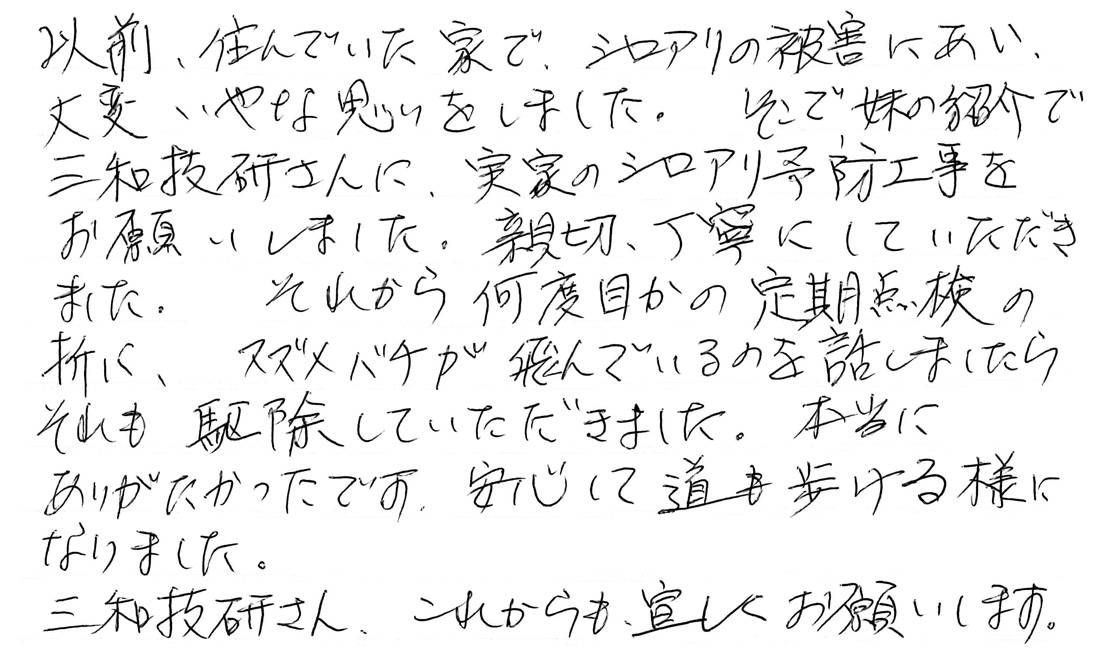 以前、住んでいた家で、シロアリの被害にあい、
大変いやな思いをしました。 そこで妹の紹介で
三和技研さんに、実家のシロアリ予防工事を
お願いしました。親切、丁寧にしていただき
ました。 それから何度目かの定期点検の
折に、 スズメバチが飛んでいるのを話しましたら
それも駆除していただきました。本当に
ありがたかったです。安心して道も歩ける様に
なりました。
三和技研さん、これからも、宜しくお願いします。